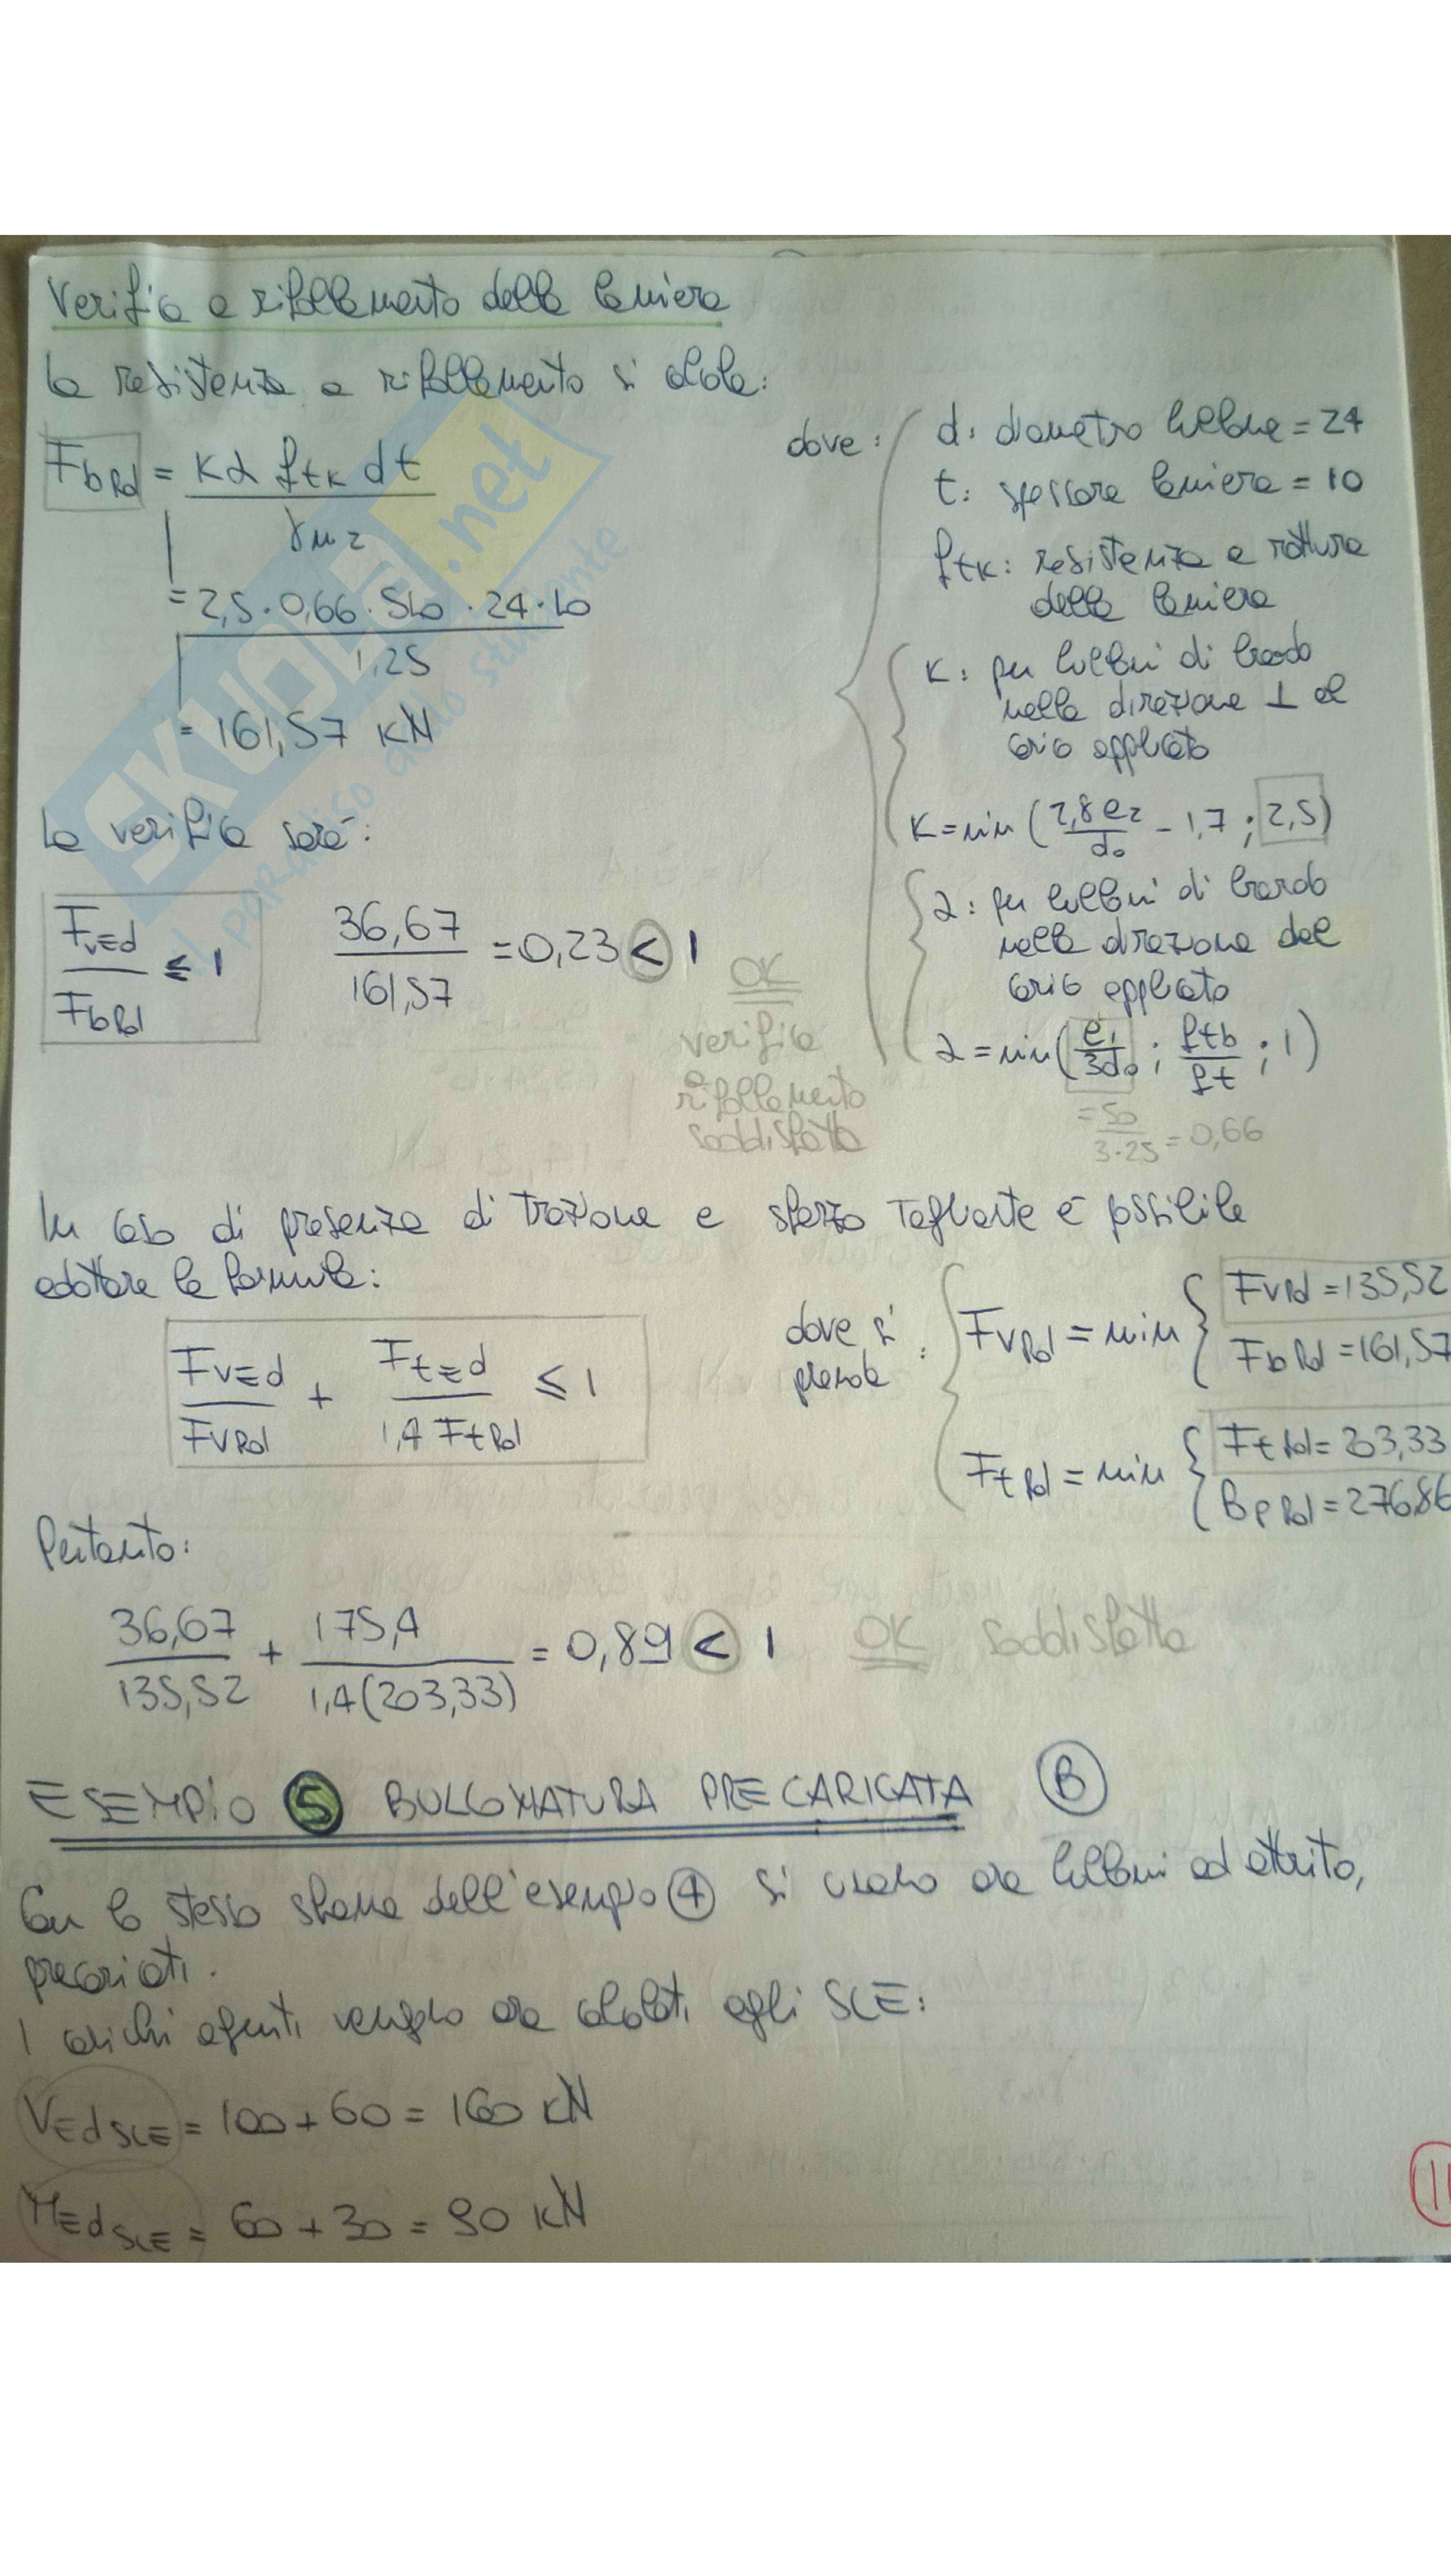 Verifica a rifollamento della lamiera
La resistenza a rifollamento si calcola:
FbRd = Kα ftk dt / γM2
= 2,5 · 0,66 · 510 · 24 · 10 / 1,25
= 161,57 kN
dove:
d: diametro bullone = 24
t: spessore lamiera = 10
ftk: resistenza a rottura
della lamiera
K: per bulloni di bordo
nella direzione ⊥ al
carico applicato
K = min (2,8 e2 / d0 - 1,7 ; 2,5)
α: per bulloni di bordo
nella direzione del
carico applicato
α = min (e1 / 3d0 ; ftb / ft ; 1)
= 50 / 3·25 = 0,66
La verifica sarà:
FvEd / FbRd ≤ 1
36,67 / 161,57 = 0,23 < 1
OK
verifica
a
rifollamento
soddisfatta
In caso di presenza di trazione e sforzo tagliante è possibile
adottare la formula:
FvEd / FvRd + FtEd / 1,4 FtRd ≤ 1
dove si
prende:
FvRd = min { FvRd = 135,52
FbRd = 161,57
FtRd = min { FtRd = 203,33
BpRd = 276,86
Pertanto:
36,67 / 135,52 + 175,4 / 1,4(203,33) = 0,89 < 1 OK soddisfatta
ESEMPIO 5 BULLONATURA PRECARICATA B
Con lo stesso schema dell'esempio 4 si usano ora bulloni ad attrito,
precaricati.
I carichi agenti vengono ora calcolati agli SLE:
VEd SLE = 100 + 60 = 160 kN
MEd SLE = 60 + 30 = 90 kN
11
SKUOLA.net
il paradiso dello studente